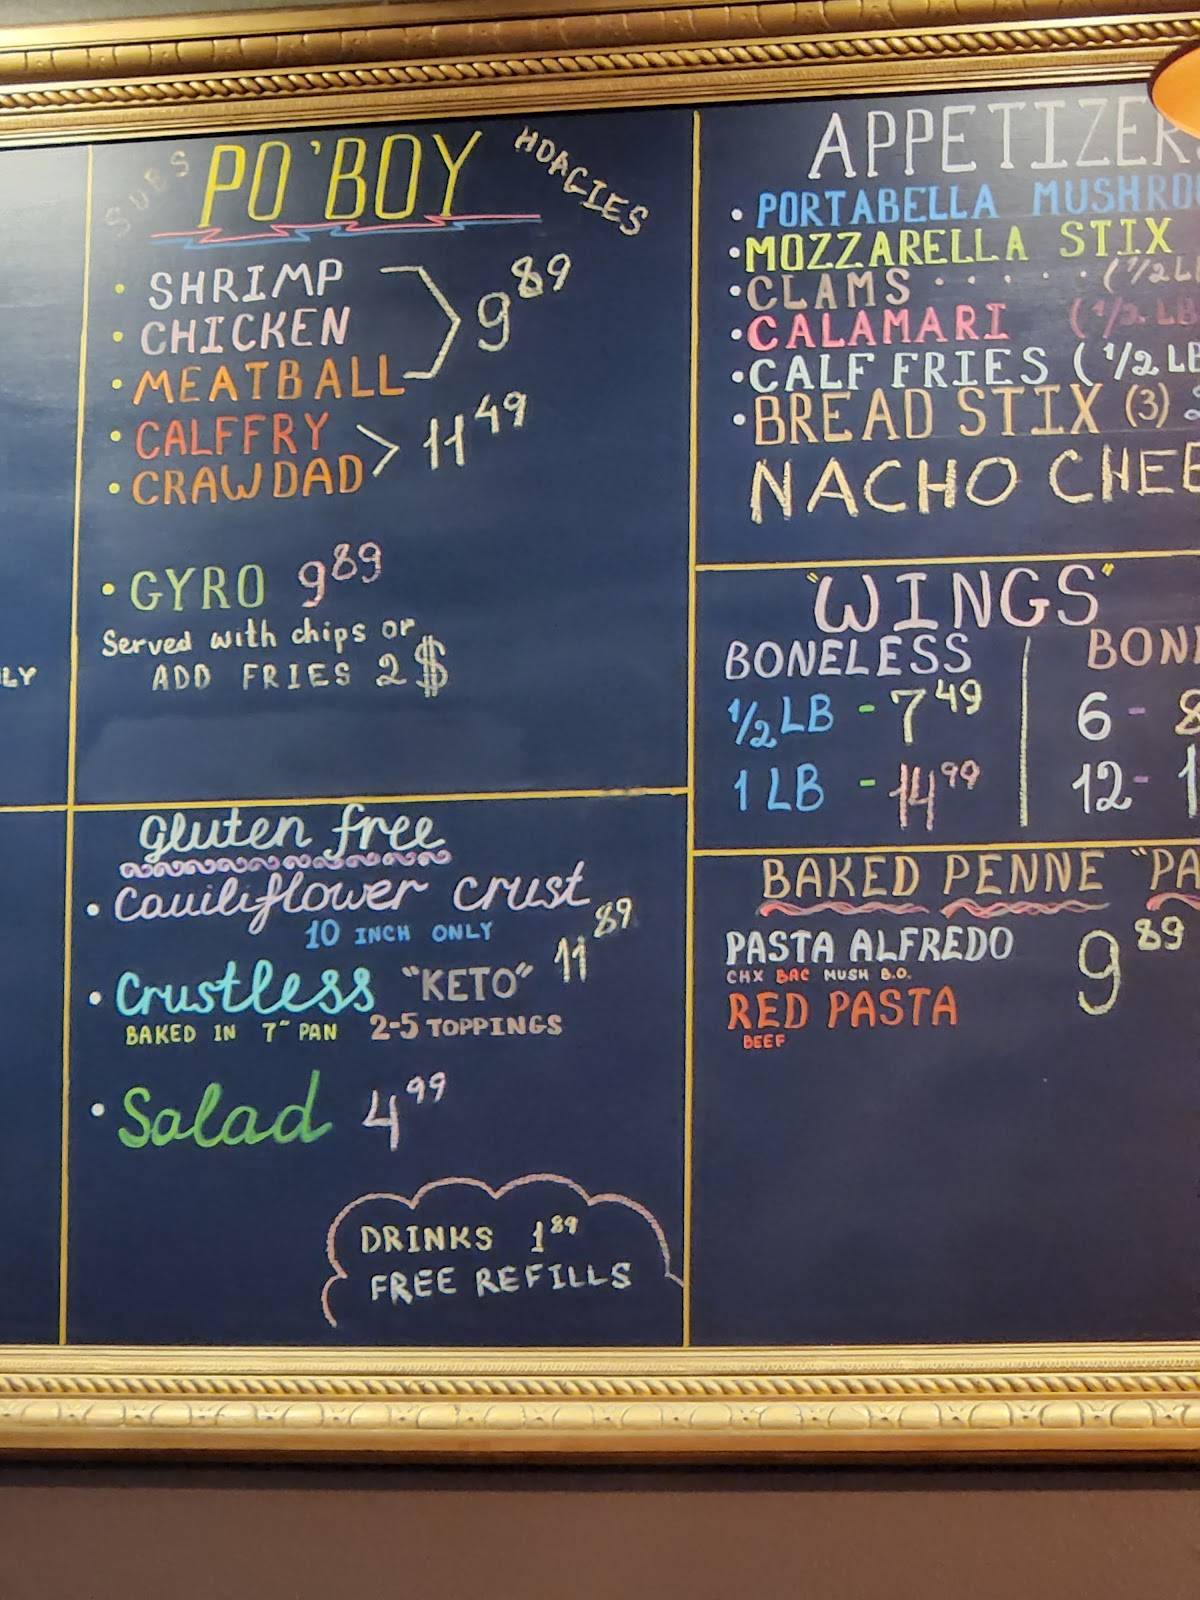 SUBS PO'BOY HOAGIES
• SHRIMP
• CHICKEN 9 89
• MEATBALL
• CALFFRY
• CRAWDAD 11 49
• GYRO 9 89
Served with chips or
ADD FRIES 2 $
LY
gluten free
• Cauiliflower crust
10 INCH ONLY
• Crustless "KETO" 11 89
BAKED IN 7" PAN 2-5 TOPPINGS
• Salad 4 99
DRINKS 1 89
FREE REFILLS
APPETIZERS
• PORTABELLA MUSHRO
• MOZZARELLA STIX
• CLAMS ..... (1/2 L
• CALAMARI (1/2 LB
• CALF FRIES (1/2 LB
• BREAD STIX (3)
NACHO CHEE
"WINGS"
BONELESS
1/2 LB - 7 49
1 LB - 14 99
BON
6 - 8
12 - 1
BAKED PENNE "PA
PASTA ALFREDO 9 89
CHX BAC MUSH B.O.
RED PASTA
BEEF